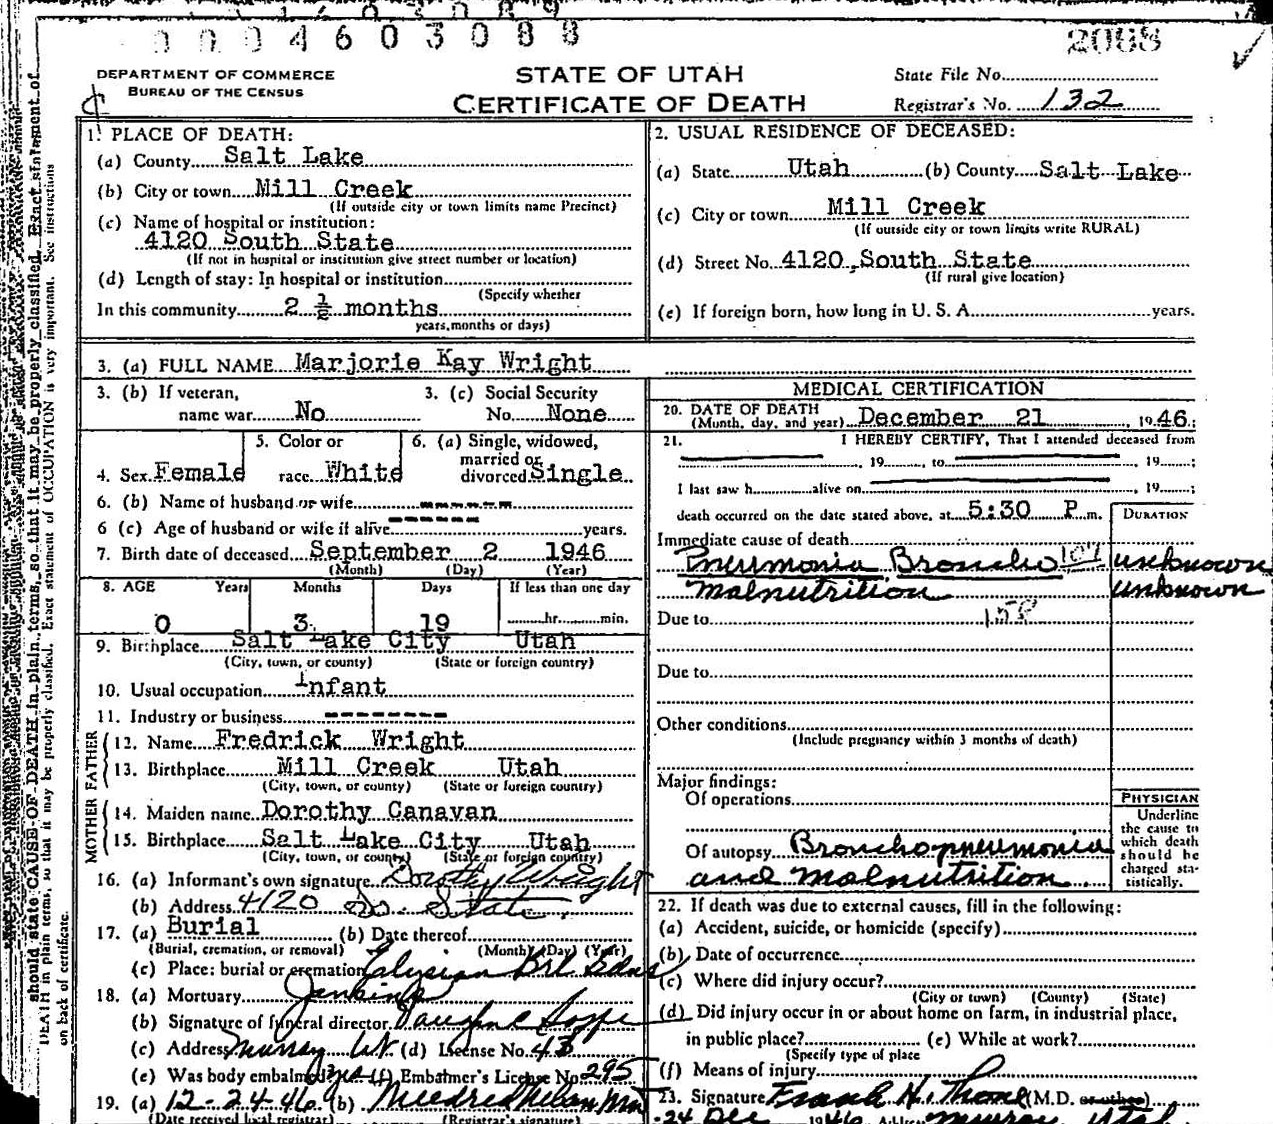 0004603088
2088
DEPARTMENT OF COMMERCE
BUREAU OF THE CENSUS
STATE OF UTAH
CERTIFICATE OF DEATH
State File No.
Registrar's No. 132
1. PLACE OF DEATH:
(a) County Salt Lake
(b) City or town Mill Creek
(If outside city or town limits name Precinct)
(c) Name of hospital or institution:
4120 South State
(If not in hospital or institution give street number or location)
(d) Length of stay: In hospital or institution
(Specify whether
In this community 2 ½ months
years, months or days)
2. USUAL RESIDENCE OF DECEASED:
(a) State Utah (b) County Salt Lake
(c) City or town Mill Creek
(If outside city or town limits write RURAL)
(d) Street No. 4120 South State
(If rural give location)
(e) If foreign born, how long in U. S. A. years.
3. (a) FULL NAME Marjorie Kay Wright
3. (b) If veteran, name war No
3. (c) Social Security No. None
4. Sex Female
5. Color or race White
6. (a) Single, widowed, married or divorced Single
6. (b) Name of husband or wife
6 (c) Age of husband or wife if alive years.
7. Birth date of deceased September 2 1946
(Month) (Day) (Year)
8. AGE Years Months Days If less than one day
0 3 19 hr. min.
9. Birthplace Salt Lake City Utah
(City, town, or county) (State or foreign country)
10. Usual occupation Infant
11. Industry or business
FATHER
12. Name Fredrick Wright
13. Birthplace Mill Creek Utah
(City, town, or county) (State or foreign country)
MOTHER
14. Maiden name Dorothy Canavan
15. Birthplace Salt Lake City Utah
(City, town, or county) (State or foreign country)
16. (a) Informant's own signature Dorothy Wright
(b) Address 4120 So. State.
17. (a) Burial (b) Date thereof
(Burial, cremation, or removal) (Month) (Day) (Year)
(c) Place: burial or cremation Elysian Brl Gdns
18. (a) Mortuary Jenkins
(b) Signature of funeral director
(c) Address Murray Ut. (d) License No. 43
(e) Was body embalmed? yes (f) Embalmer's License No. 295
19. (a) 12-24-46 (b) Mildred
(Date received local registrar) (Registrar's signature)
MEDICAL CERTIFICATION
20. DATE OF DEATH
(Month, day, and year) December 21, 1946.
21. I HEREBY CERTIFY, That I attended deceased from
, 19 , to , 19 ;
I last saw h alive on , 19 ;
death occurred on the date stated above, at 5:30 P m.
DURATION
Immediate cause of death
Pneumonia Broncho 107 unknown
Malnutrition unknown
Due to 158
Due to
Other conditions
(Include pregnancy within 3 months of death)
Major findings:
Of operations
Of autopsy Bronchopneumonia
and Malnutrition
PHYSICIAN
Underline
the cause to
which death
should be
charged sta-
tistically.
22. If death was due to external causes, fill in the following:
(a) Accident, suicide, or homicide (specify)
(b) Date of occurrence
(c) Where did injury occur?
(City or town) (County) (State)
(d) Did injury occur in or about home on farm, in industrial place,
in public place? (e) While at work?
(Specify type of place
(f) Means of injury
23. Signature Frank H. (M.D. or other)
24 Dec 1946 Address Murray Utah
should state CAUSE OF DEATH in plain terms, so that it may be properly classified. Exact statement of
DEATH in plain terms, so that it may be properly classified. Exact statement of OCCUPATION is very important. See instructions
on back of certificate.